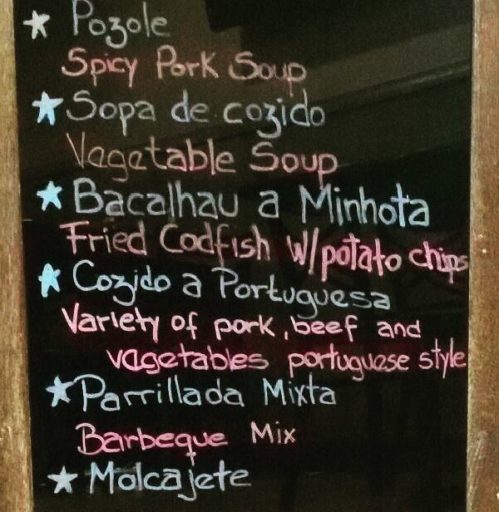 Pozole
Spicy Pork Soup
Sopa de cozido
Vegetable Soup
Bacalhau a Minhota
Fried Codfish w/potato chips
Cozido a Portuguesa
Variety of pork, beef and
vegetables portuguese style
Parrillada Mixta
Barbeque Mix
Molcajete